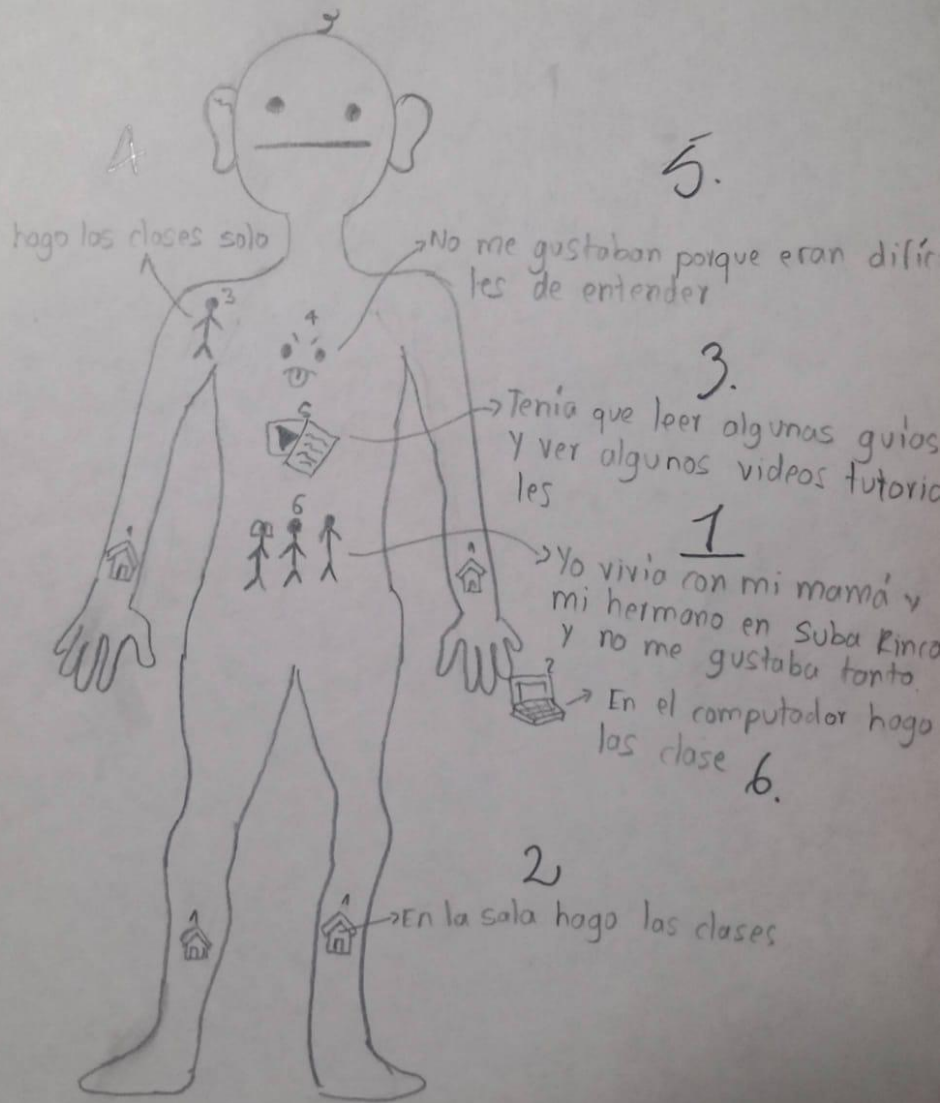 4
hago las clases solo
3
5.
No me gustaban porque eran difíc
les de entender
4
3.
Tenía que leer algunas guías
y ver algunos videos tutoria
les
5
1
Yo vivía con mi mamá y
mi hermano en Suba Rinco
y no me gustaba tanto.
6
1
1
2
En el computador hago
las clase 6.
2
En la sala hago las clases
1
1